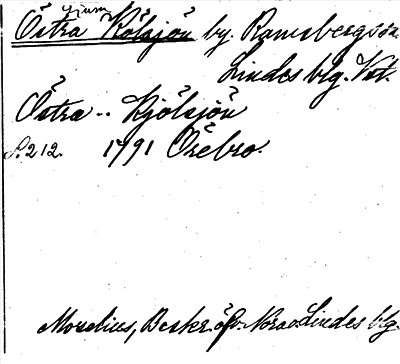 Östra Kölsjön by. Ramsbergs sn.
Lindes blg. Vstl.
Östra -- Kjölsjön
S. 212. 1791 Örebro.
Moselius, Beskr. öfv. Nora o. Lindes blg.